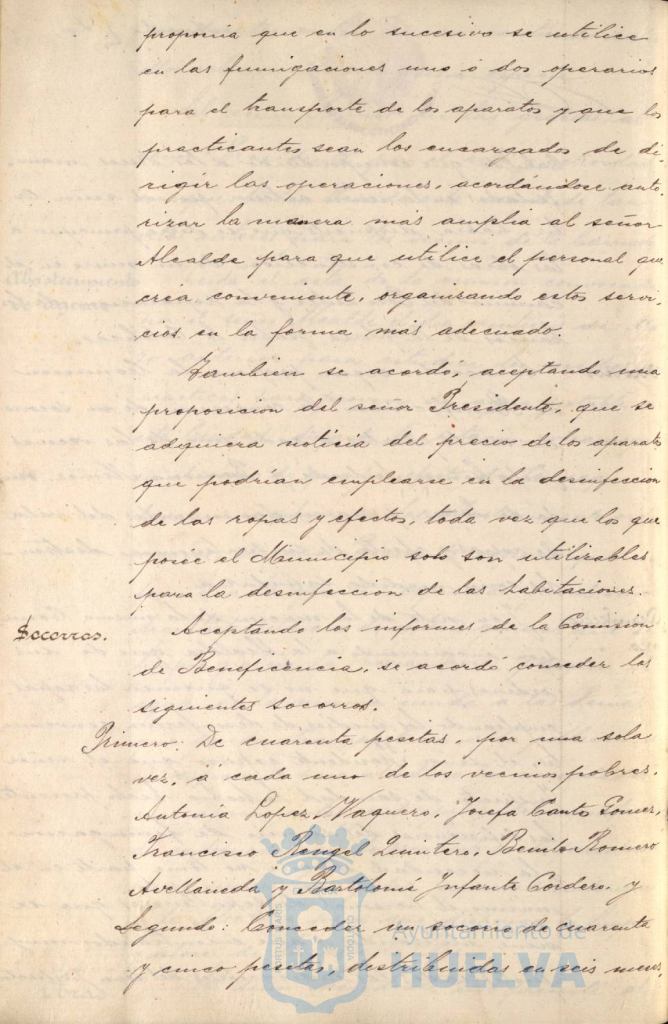 proponia que en lo sucesivo se utilice
en las fumigaciones uno ó dos operarios
para el transporte de los aparatos y que los
practicantes sean los encargados de di-
rigir las operaciones, acordándose auto-
rizar la manera más amplia al señor
Alcalde para que utilice el personal que
crea conveniente, organizando estos servi-
cios en la forma más adecuado.
Tambien se acordó, aceptando una
proposicion del señor Presidente, que se
adquiera noticia del precio de los aparatos
que podrían emplearse en la desinfeccion
de las ropas y efectos, toda vez que los que
posée el Municipio solo son utilizables
para la desinfeccion de las habitaciones.
Socorros.
Aceptando los informes de la Comision
de Beneficencia, se acordó conceder los
siguientes socorros.
Primero: De cuarenta pesetas, por una sola
vez, á cada uno de los vecinos pobres,
Antonia Lopez Vaquero, Josefa Canto Gomez,
Francisco Rengel Quintero, Benito Romero
Avellaneda y Bartolomé Infante Cordero, y
Segundo: Conceder un socorro de cuarenta
y cinco pesetas, distribuidas en seis meses,
Ayuntamiento de
HUELVA